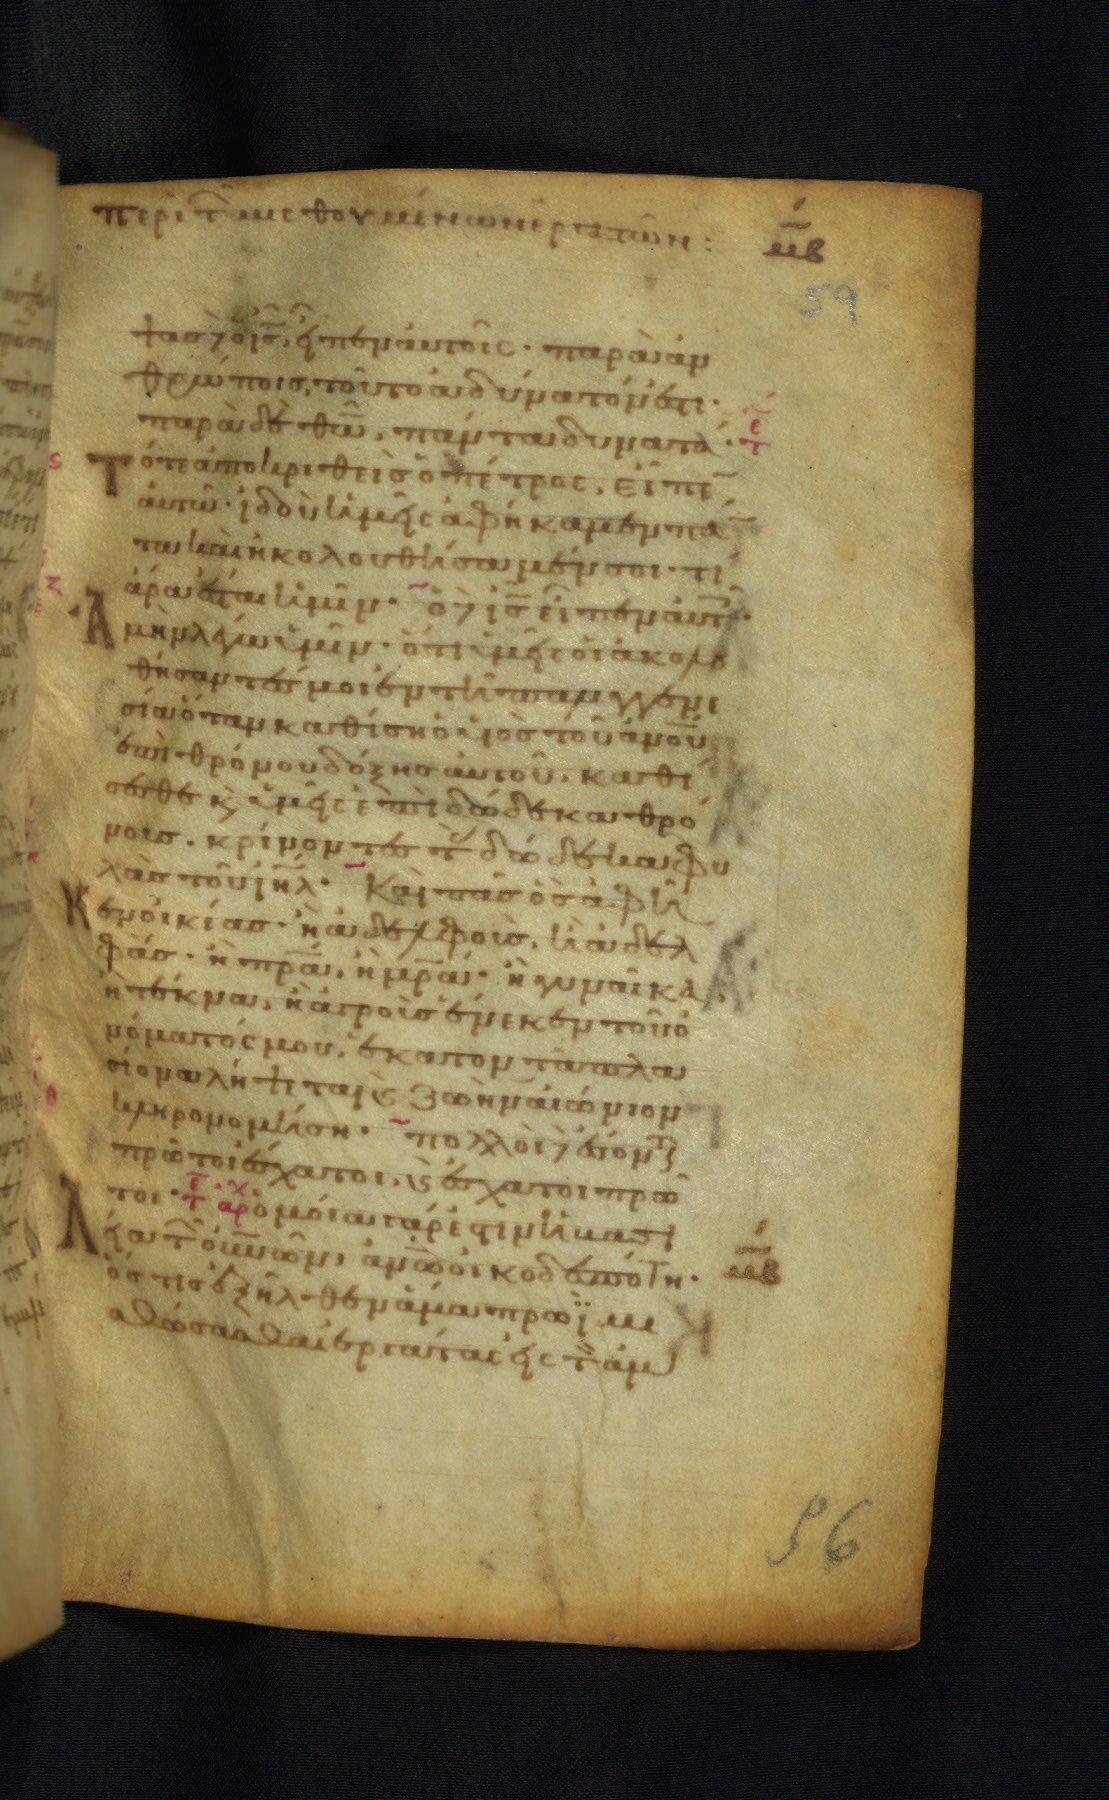 περὶ τῶν μισθουμένων ἐργατῶν :
μβ
59
ψας δὲ ὁ ι̅ς̅, εἶπεν αὐτοῖς · παρὰ ἀν
θρώποις, τοῦτο ἀδύνατόν ἐστι ·
παρὰ δὲ θ̅ω̅, πάντα δυνατά ·
τότε ἀποκριθεὶς ὁ πέτρος, εἶπεν
αὐτῶ · ἰδοὺ ἡμεῖς ἀφήκαμεν πάν
τα καὶ ἠκολουθήσαμέν σοι · τί
ἄρα ἔσται ἡμῖν · ὁ δὲ ι̅ς̅ εἶπεν αὐτοῖς ·
Ἀμὴν λέγω ὑμῖν · ὅτι ὑμεῖς οἱ ἀκολου
θήσαντές μοι ἐν τῆ παλιγγενε
σία ὅταν καθίση ὁ υἱὸς τοῦ α̅ν̅ο̅υ̅
ἐπὶ θρόνου δόξης αὐτοῦ, καθί
σεσθε κ̀ ὑμεῖς ἐπὶ δώδεκα θρό
νοις · κρίνοντες τὰς δώδεκα φυ
λὰς τοῦ ι̅η̅λ̅ · Καὶ πᾶς ὃς ἀφῆ
κεν οἰκίας · ἢ ἀδελφοὺς, ἢ ἀδελ
φὰς · ἢ π̅ρ̅α̅, ἢ μ̅ρ̅α̅ · ἢ γυναῖκα,
ἢ τέκνα, ἢ ἀγροὺς ἕνεκεν τοῦ ὀ
νόματός μου, ἑκατονταπλα
σίονα λήψεται κ̀ ζωὴν αἰώνιον
κληρονομήση · πολλοὶ δὲ ἔσονται
πρῶτοι ἔσχατοι, κ̀ ἔσχατοι πρῶ
τοι · ὁμοία γάρ ἐστιν ἡ βασι
λεία τῶν ο̅υ̅ν̅ω̅ν̅, α̅ν̅ω̅ οἰκοδεσπότη ·
μβ
ὅστις ἐξῆλθεν ἅμα πρωῒ μι
σθώσασθαι ἐργάτας εἰς τὸν ἀμ
56